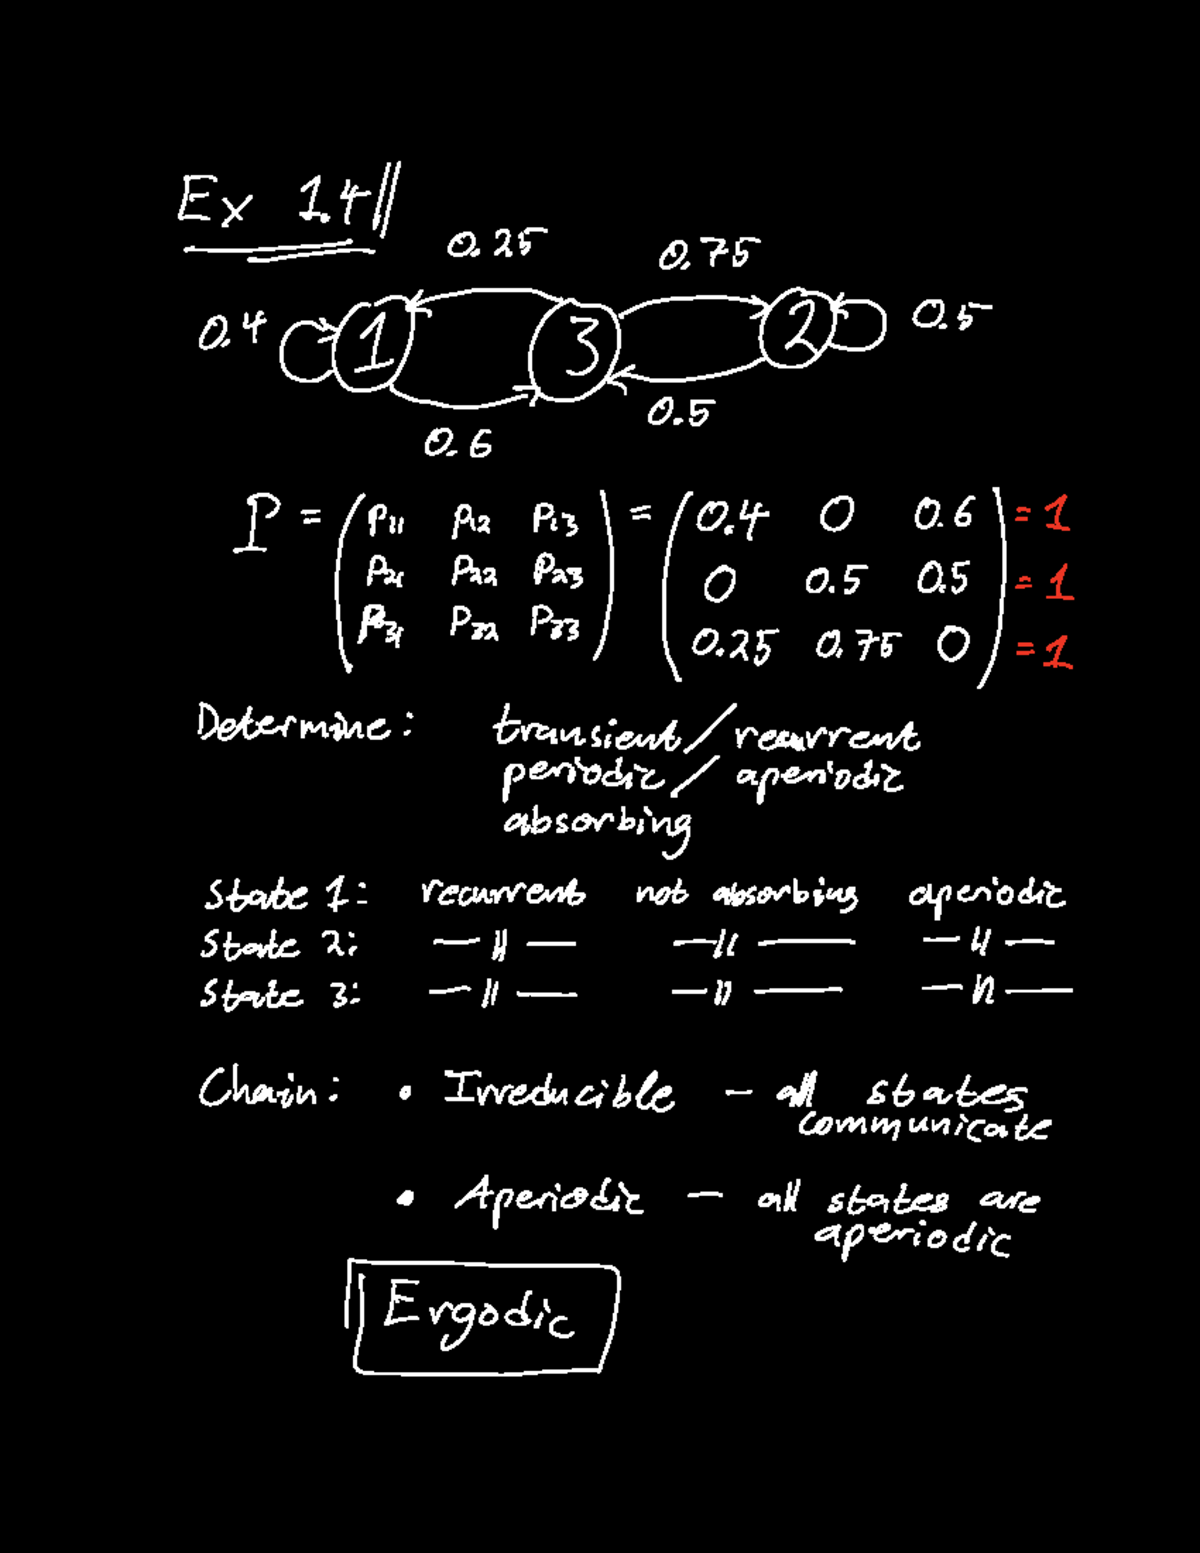 Ex 1.4
0.25 0.75
0.4 1 3 2 0.5
0.6 0.5
P = ( p11 p12 p13 ) = ( 0.4 0 0.6 ) = 1
p21 p22 p23 0 0.5 0.5 = 1
p31 p32 p33 0.25 0.75 0 = 1
Determine: transient / recurrent
periodic / aperiodic
absorbing
State 1: recurrent not absorbing aperiodic
State 2: —||— —||— —||—
State 3: —||— —||— —||—
Chain: • Irreducible — all states
communicate
• Aperiodic — all states are
aperiodic
Ergodic